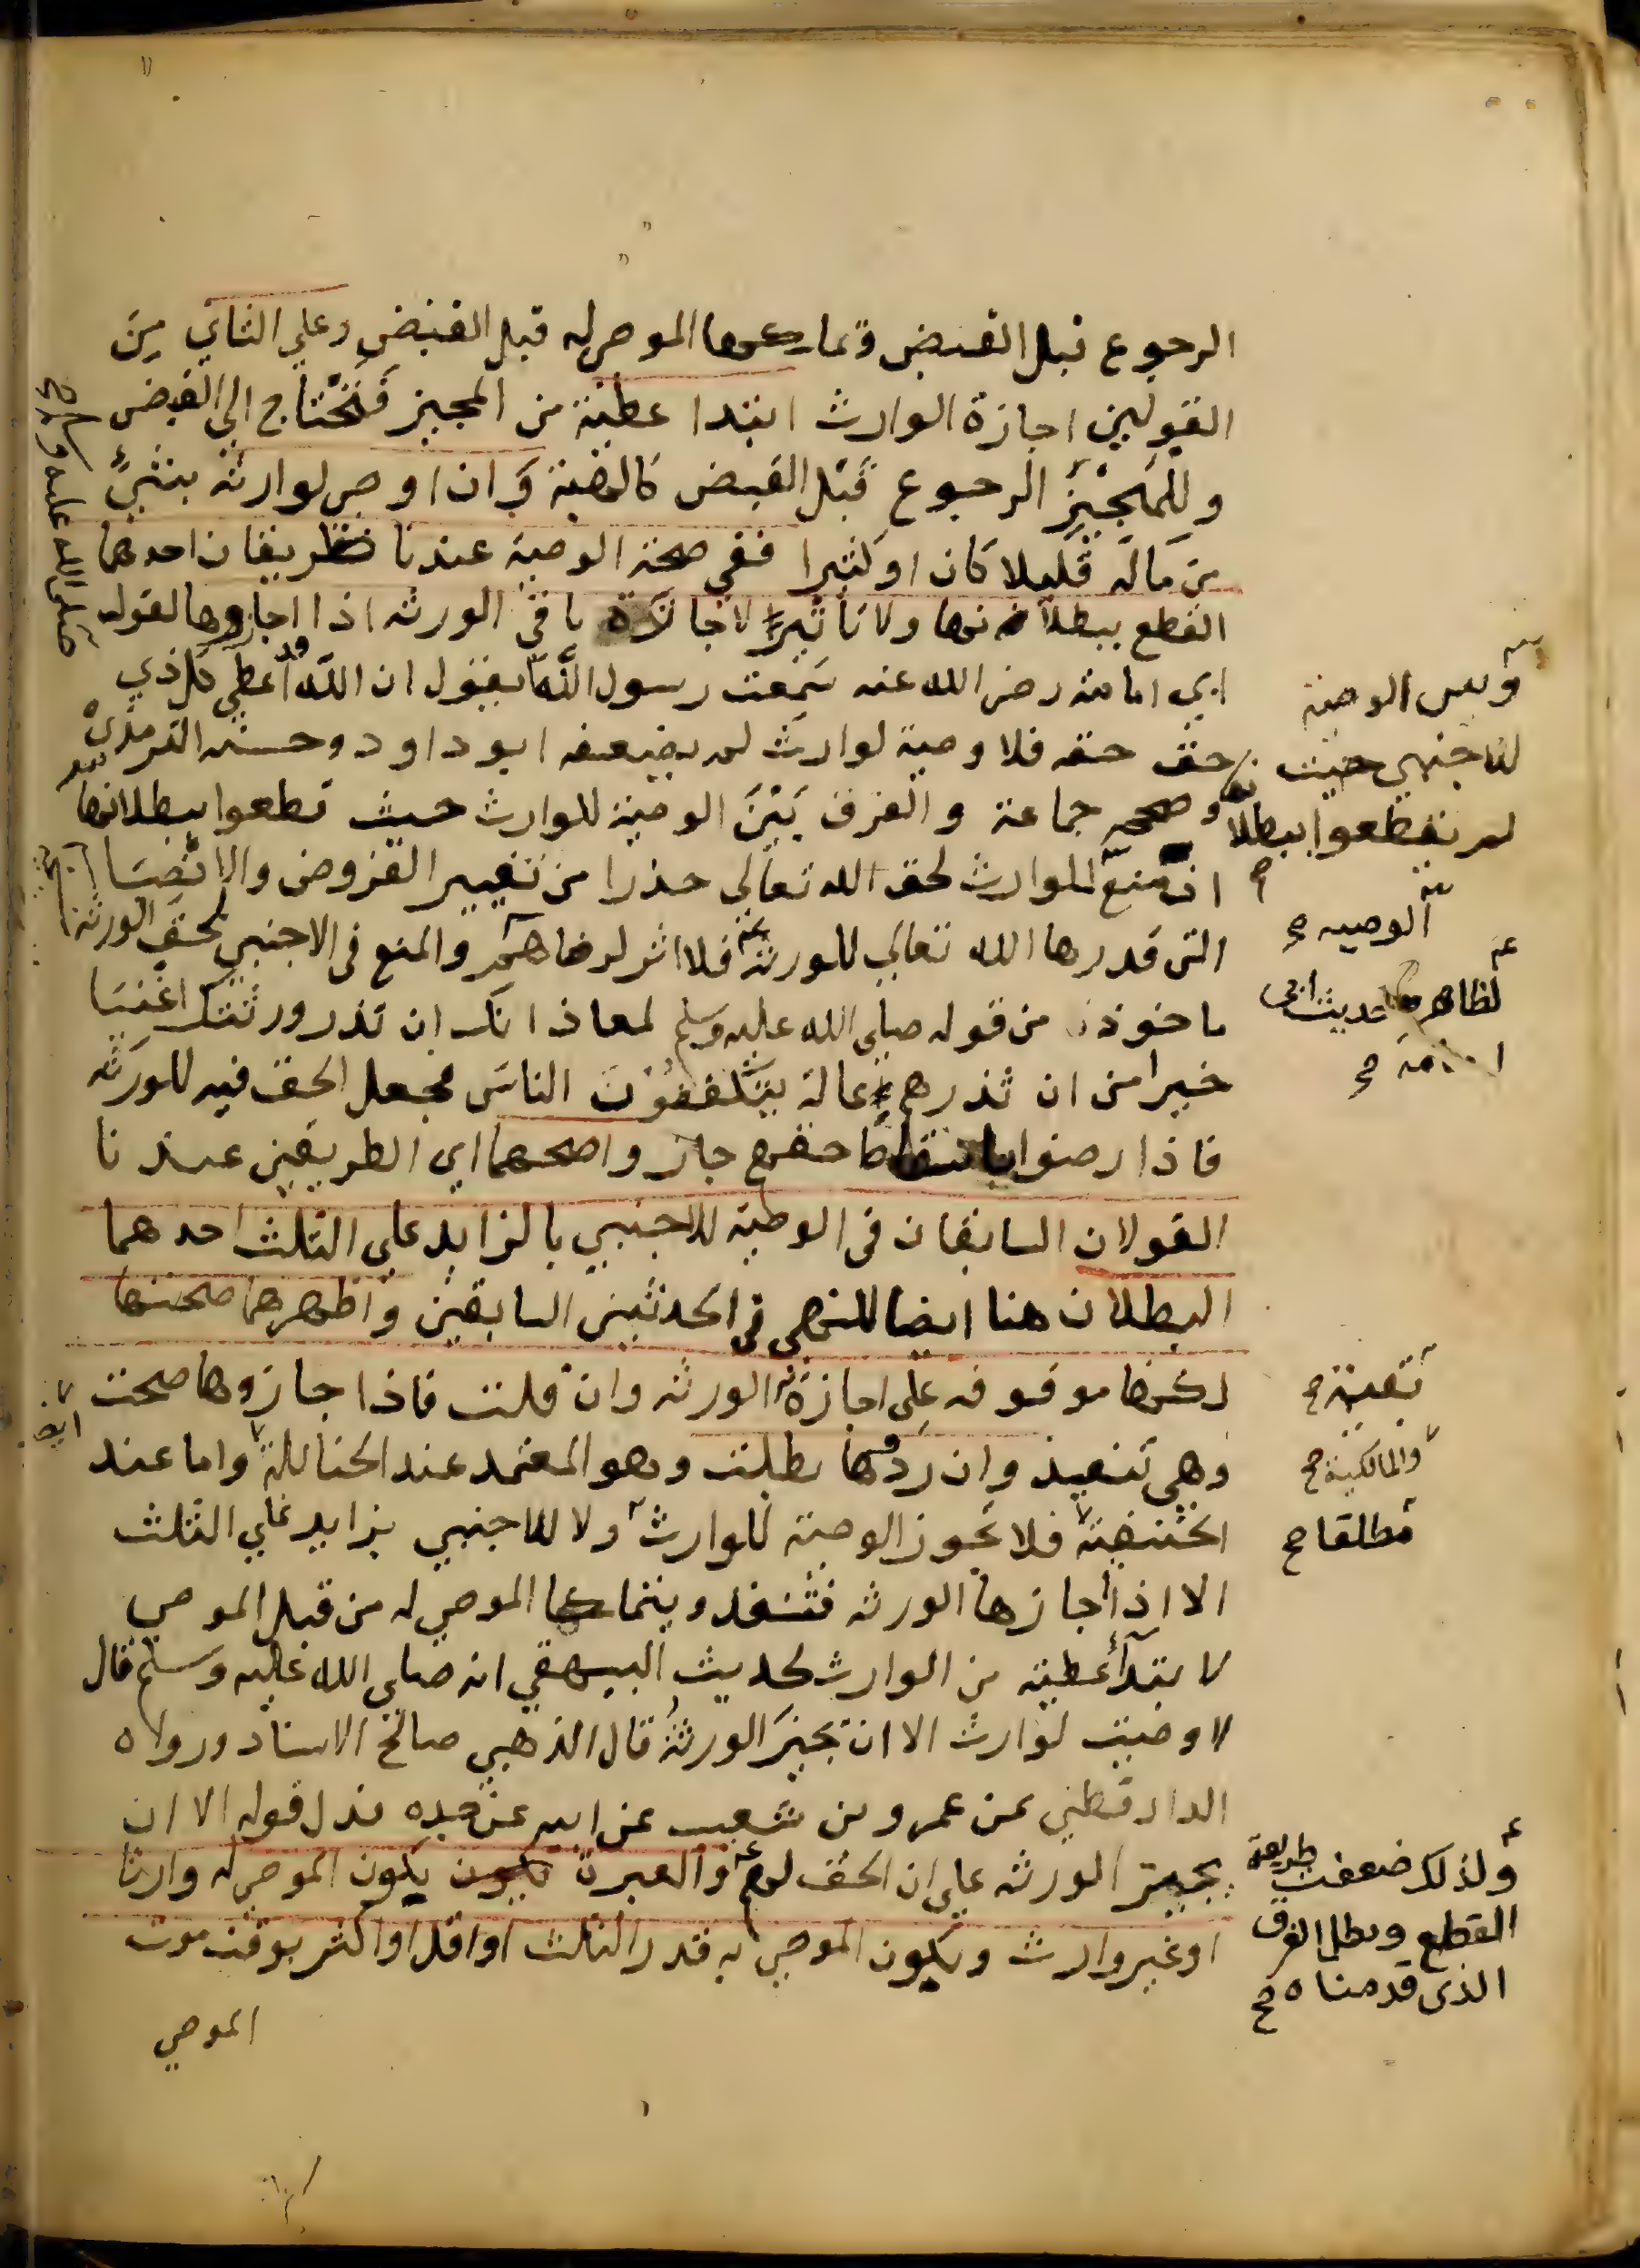 الرجوع قبل القبض وتملكها الموصي له قبل القبض وعلي الثاني من
القولين اجازة الوارث ابتدا عطية من المجيز فتحتاج الي القبض
وللمجيز الرجوع قبل القبض كالهبة وان اوصي لوارثه بشئ
من ماله قليلا كان او كثيرا ففي صحة الوصية عندنا طريقان احدهما
القطع ببطلانها ولا تاثير لاجازة باقي الورثة اذا اجازوها لقول
ابي امامة رضي الله عنه سمعت رسول الله يقول ان الله قد أعطي كل ذي
حق حقه فلا وصية لوارث لم يضعفه ابو داود وحسنه الترمذي
وصححه جماعة والفرق بين الوصية للوارث حيث قطعوا ببطلانها
ان منع الوارث لحق الله تعالي حذرا من تغيير الفروض والانصبا
التي قدرها الله تعالي للورثة فلا اثر لرضاهم والمنع في الاجنبي لحق الورثة
ماخوذ من قوله صلي الله عليه وسلم لمعاذ انك ان تذر ورثتك اغنيا
خيرا من ان تذرهم عالة يتكففون الناس فجعل الحق فيه للورثة
فاذا رضوا باسقاط حقهم جاز واصحهما اي الطريقين عندنا
القولان السابقان في الوصية للاجنبي بالزايد علي الثلث احدهما
البطلان هنا ايضا للنهي في الحديثين السابقين واظهرهما صحتها
لكنها موقوفه علي اجازة الورثه وان قلت فاذا جازوها صحت
وهي تنفيذ وان ردوها بطلت وهو المعتمد عند الحنابلة واما عند
الحنفية فلا تجوز الوصية للوارث ولا للاجنبي بزايد علي الثلث
الا اذا اجازها الورثه فتنفذ ويتملكها الموصي له من قبل الموصي
لا بتدأ عطية من الوارث لحديث البيهقي انه صلي الله عليه وسلم قال
لا وصية لوارث الا ان تجيز الورثة قال الذهبي صالح الاسناد ورواه
الدارقطني عن عمرو بن شعيب عن ابيه عن جده فدل قوله الا ان
يجيز الورثه علي ان الحق لهم والعبرة بكون يكون الموصي له وارثا
او غير وارث وبكون الموصي به قدر الثلث او اقل او اكثر بوقت موت
الموصي
صلي الله عليه وسلم صح
وبين الوصية
للاجنبي حيث
لم يقطعوا ببطلانها
الوصيه صح
لظاهر حديث ابي
امامة صح
بقية صح
والمالكية صح
ايضا
مطلقا صح
ولذلك ضعفت طريقة
القطع وبطل الفرق
الذي قدمناه صح